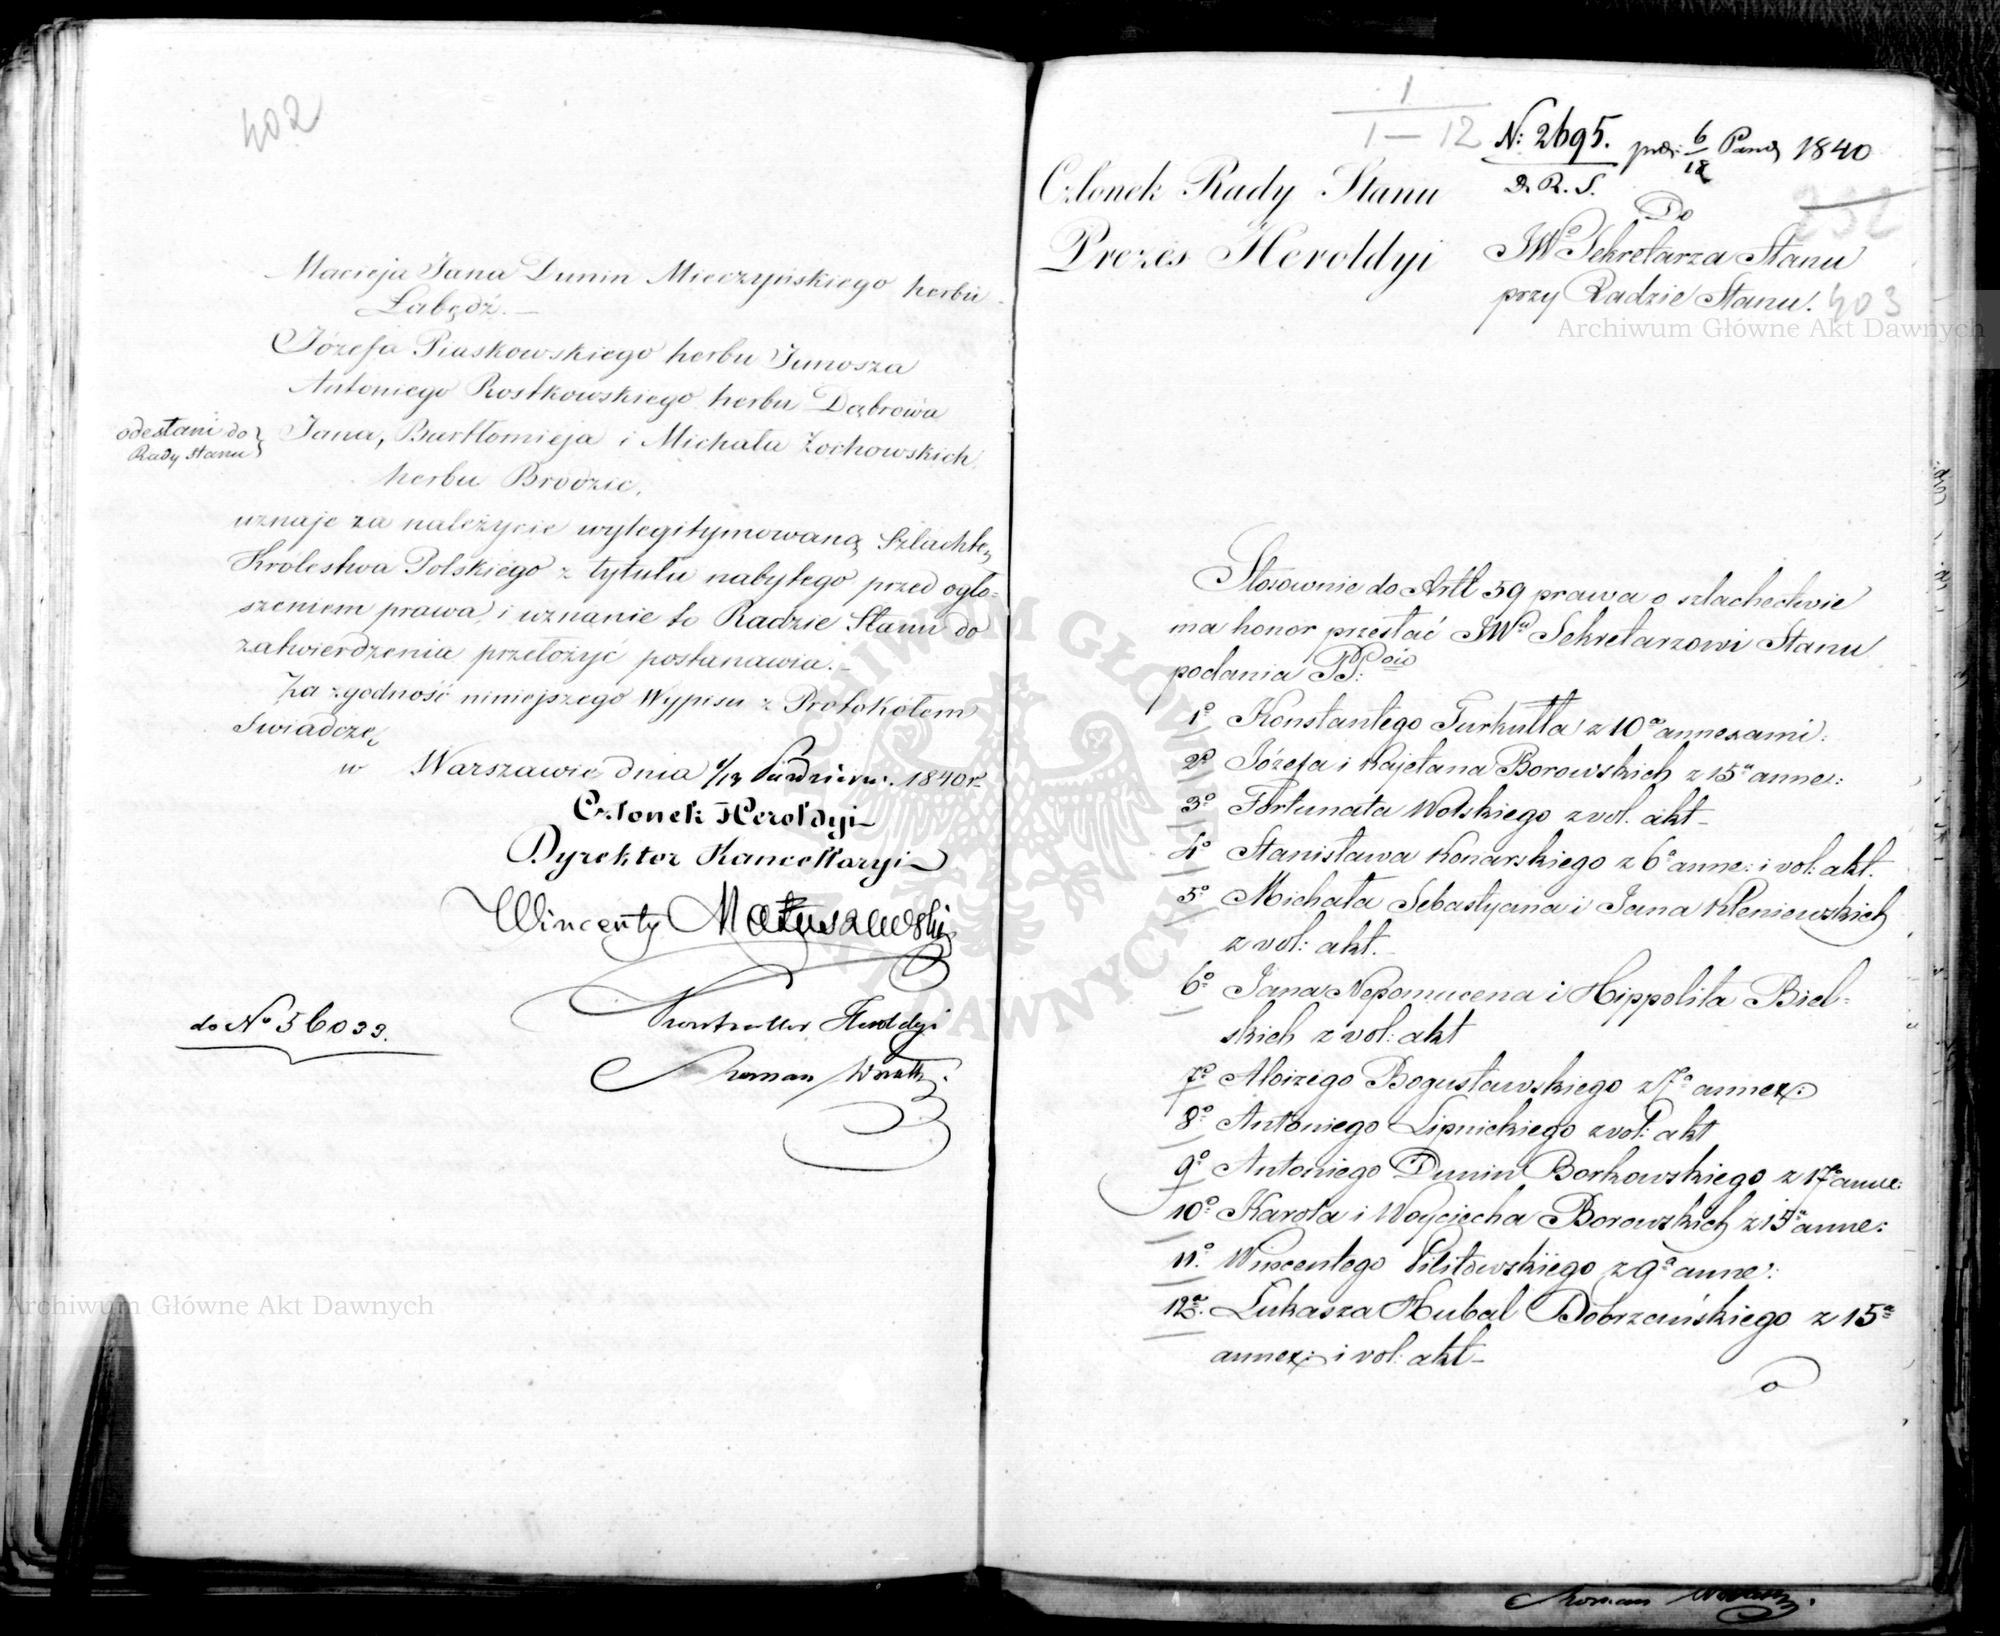 402
Macieja Jana Dunin Mieczyńskiego herbu
Łabędź.
Józefa Piaskowskiego herbu Junosza
Antoniego Rostkowskiego herbu Dąbrowa
odesłani do
Rady Stanu
Jana, Bartłomieja i Michała Żochowskich
herbu Brodzic,
uznaje za należycie wylegitymowaną Szlachtę
Królestwa Polskiego z tytułu nabytego przed ogło=
szeniem prawa, i uznanie to Radzie Stanu do
zatwierdzenia przełożyć postanawia.
Za zgodność niniejszego Wypisu z Protokółem
Świadczę
w Warszawie dnia 1840 r.
Członek Heroldyi
Dyrektor Kancellaryi
Wincenty Matuszewski
Kontroller Heroldyi
Roman
do No 56033.
1
1 — 12
N: 2695.
D. R. S.
6
18
1840
252
Członek Rady Stanu
Prezes Heroldyi
Do
JWo Sekretarza Stanu
przy Radzie Stanu.
403
Stosownie do Artł 59 prawa o szlachectwie
ma honor przesłać JWu Sekretarzowi Stanu
podania PP:
1o Konstantego Turkułła z 10a annexami:
2o Józefa i Kajetana Borowskich z 15a anne:
3o Fortunata Wolskiego z vol. akt
4o Stanisława Konarskiego z 6a anne: i vol: akt.
5o Michała Sebastyana i Jana Kleniewskich
z vol: akt.
6o Jana Nepomucena i Hippolita Biel=
skich z vol: akt
7o Aloizego Bogusławskiego z 7a annex:
8o Antoniego Lipnickiego z vol: akt
9o Antoniego Dunin Borkowskiego z 17a anne:
10o Karola i Woyciecha Borowskich z 15a anne:
11o Wincentego Pilitowskiego z 9a anne:
12o Łukasza Hubal Dobrzańskiego z 15a
annex: i vol: akt
Roman
Archiwum Główne Akt Dawnych
Archiwum Główne Akt Dawnych
ARCHIWUM GŁÓWNE AKT DAWNYCH